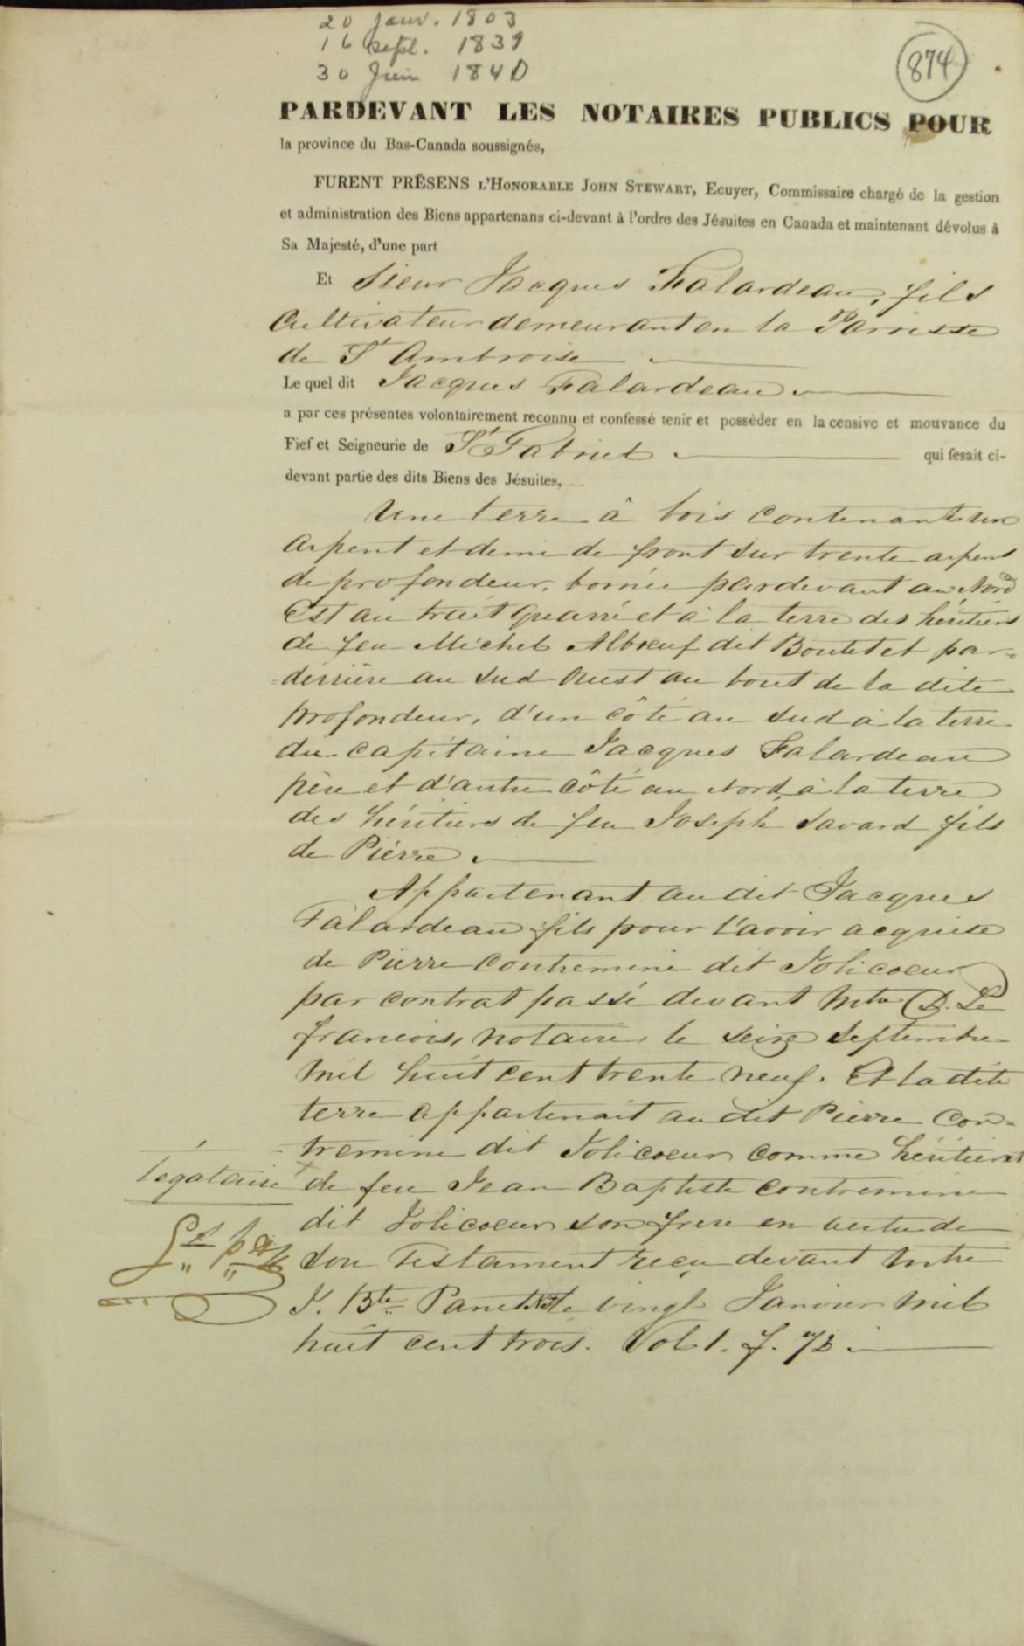 20 Janv. 1803
16 Sept. 1839
30 Juin 1840
874
PARDEVANT LES NOTAIRES PUBLICS POUR
la province du Bas-Canada soussignés,
FURENT PRÉSENS L'HONORABLE JOHN STEWART, Ecuyer, Commissaire chargé de la gestion
et administration des Biens appartenans ci-devant à l'ordre des Jésuites en Canada et maintenant dévolus à
Sa Majesté, d'une part
Et Sieur Jacques Falardeau, fils
Cultivateur demeurant en la Paroisse
de St Ambroise
Le quel dit Jacques Falardeau
a par ces présentes volontairement reconnu et confessé tenir et posséder en la censive et mouvance du
Fief et Seigneurie de St Gabriel qui fesait ci-
devant partie des dits Biens des Jésuites,
Une terre à bois contenant un
arpent et demi de front sur trente arpens
de profondeur, bornée pardevant au Nord
Est au trait quarré et à la terre des héritiers
de feu Michel Alboeuf dit Boutet et par-
derrière au Sud Ouest au bout de la dite
profondeur, d'un côté au Sud à la terre
du capitaine Jacques Falardeau
père et d'autre côté au Nord à la terre
des héritiers de feu Joseph Savard fils
de Pierre
Appartenant au dit Jacques
Falardeau fils pour l'avoir acquise
de Pierre Contremine dit Jolicoeur
par contrat passé devant Mtre D. Le
francois, notaire, le seize Septembre
mil huit cent trente neuf. Et la dite
terre appartenait au dit Pierre Con-
tremine dit Jolicoeur comme héritier
légataire
de feu Jean Baptiste Contremine
dit Jolicoeur son frere en vertu de
son Testament reçu devant Mtre
J. Bte Panet Nre le vingt Janvier mil
huit cent trois. Vol 1. f. 72.